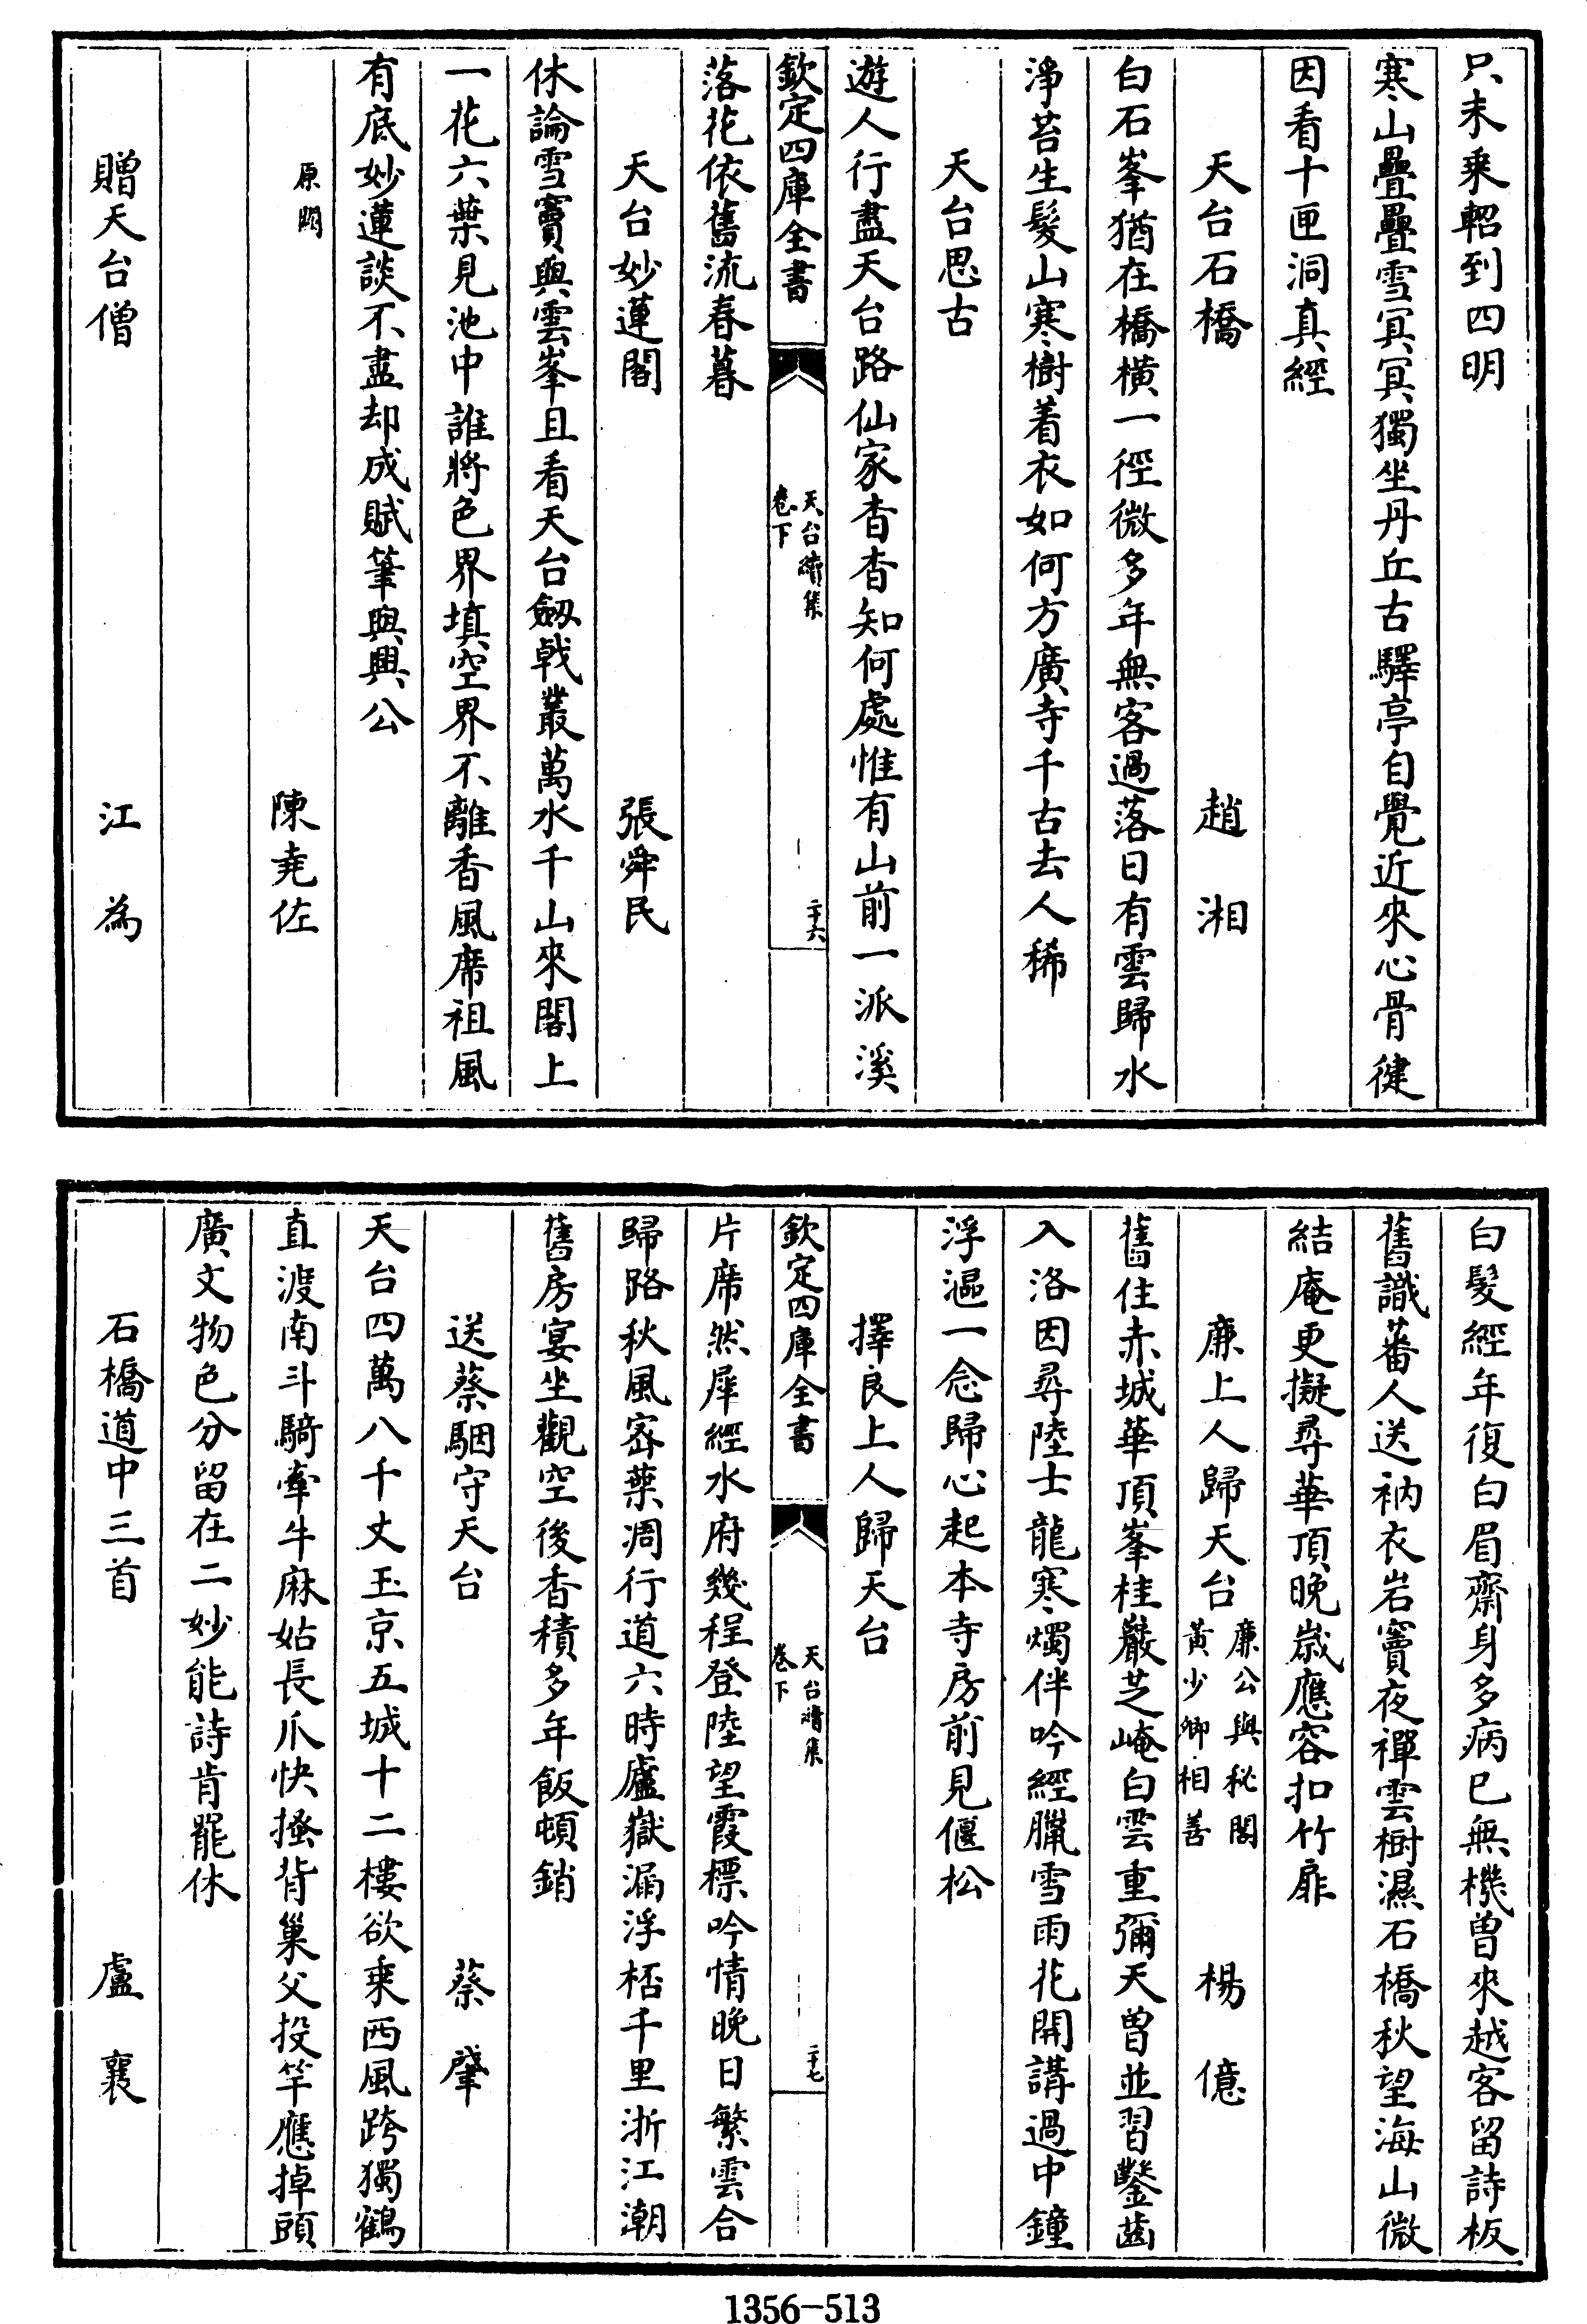 只未乘軺到四明
寒山疊疊雪冥冥獨坐丹丘古驛亭自覺近來心骨徤
因看十匣洞真經
天台石橋 趙湘
白石峯猶在橋橫一徑微多年無客過落日有雲歸水
淨苔生髮山寒樹着衣如何方廣寺千古去人稀
天台思古
遊人行盡天台路仙家杳杳知何處惟有山前一派溪
欽定四庫全書 天台續集卷下 二十六
落花依舊流春暮
天台妙蓮閣 張舜民
休論雪竇與雲峯且看天台劔戟叢萬水千山來閣上
一花六葉見池中誰將色界填空界不離香風席祖風
有底妙蓮談不盡却成賦筆與興公
原闕 陳尭佐
贈天台僧 江為
白髮經年復白眉齋身多病已無機曽來越客留詩板
舊識蕃人送衲衣岩竇夜禪雲樹濕石橋秋望海山微
結庵更擬尋華頂晚嵗應容扣竹扉
廉上人歸天台 廉公與秘閣黃少卿相善 楊億
舊住赤城華頂峯桂巖芝崦白雲重彌天曽並習鑿齒
入洛因尋陸士龍寒燭伴吟經臘雪雨花開講過中鐘
浮漚一念歸心起本寺房前見偃松
擇良上人歸天台
欽定四庫全書 天台續集卷下 二十七
片席然犀經水府幾程登陸望霞標吟情晚日繁雲合
歸路秋風宻葉凋行道六時廬嶽漏浮桮千里浙江潮
舊房宴坐觀空後香積多年飯頓銷
送蔡駰守天台 蔡肇
天台四萬八千丈玉京五城十二樓欲乘西風跨獨鶴
直渡南斗騎牽牛麻姑長爪快搔背巢父投竿應掉頭
廣文物色分留在二妙能詩肯罷休
石橋道中三首 盧襄
1356-513